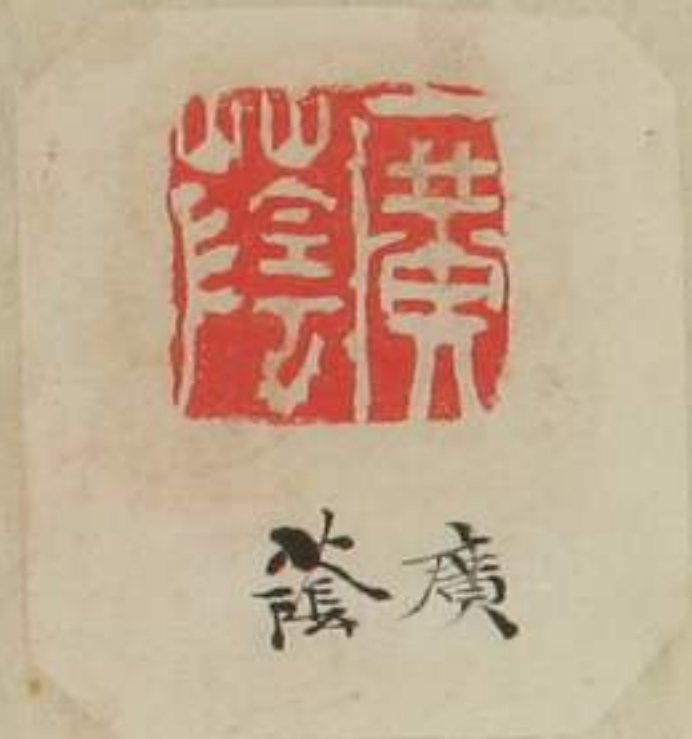 廣蔭
廣蔭